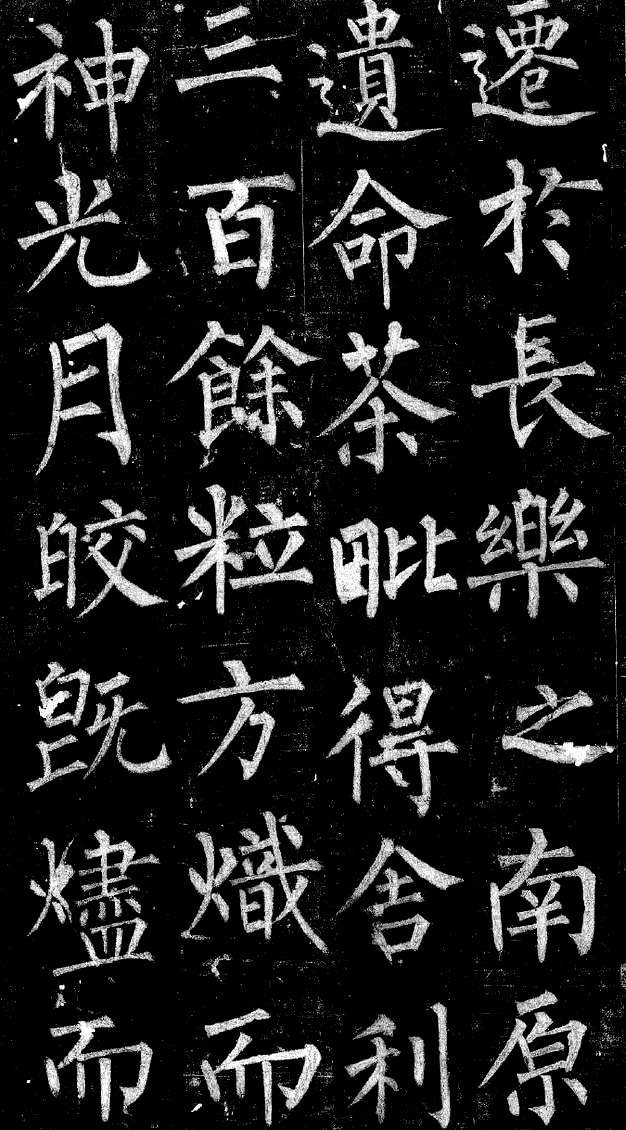 遷於長樂之南原
遺命荼毗得舍利
三百餘粒方熾而
神光月皎既燼而